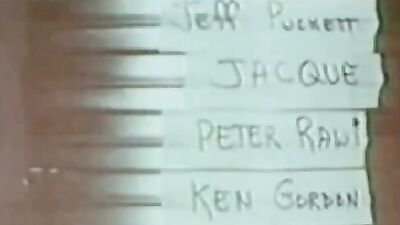 Jeff Puckett
JACQUE
PETER RAWI
KEN GORDON